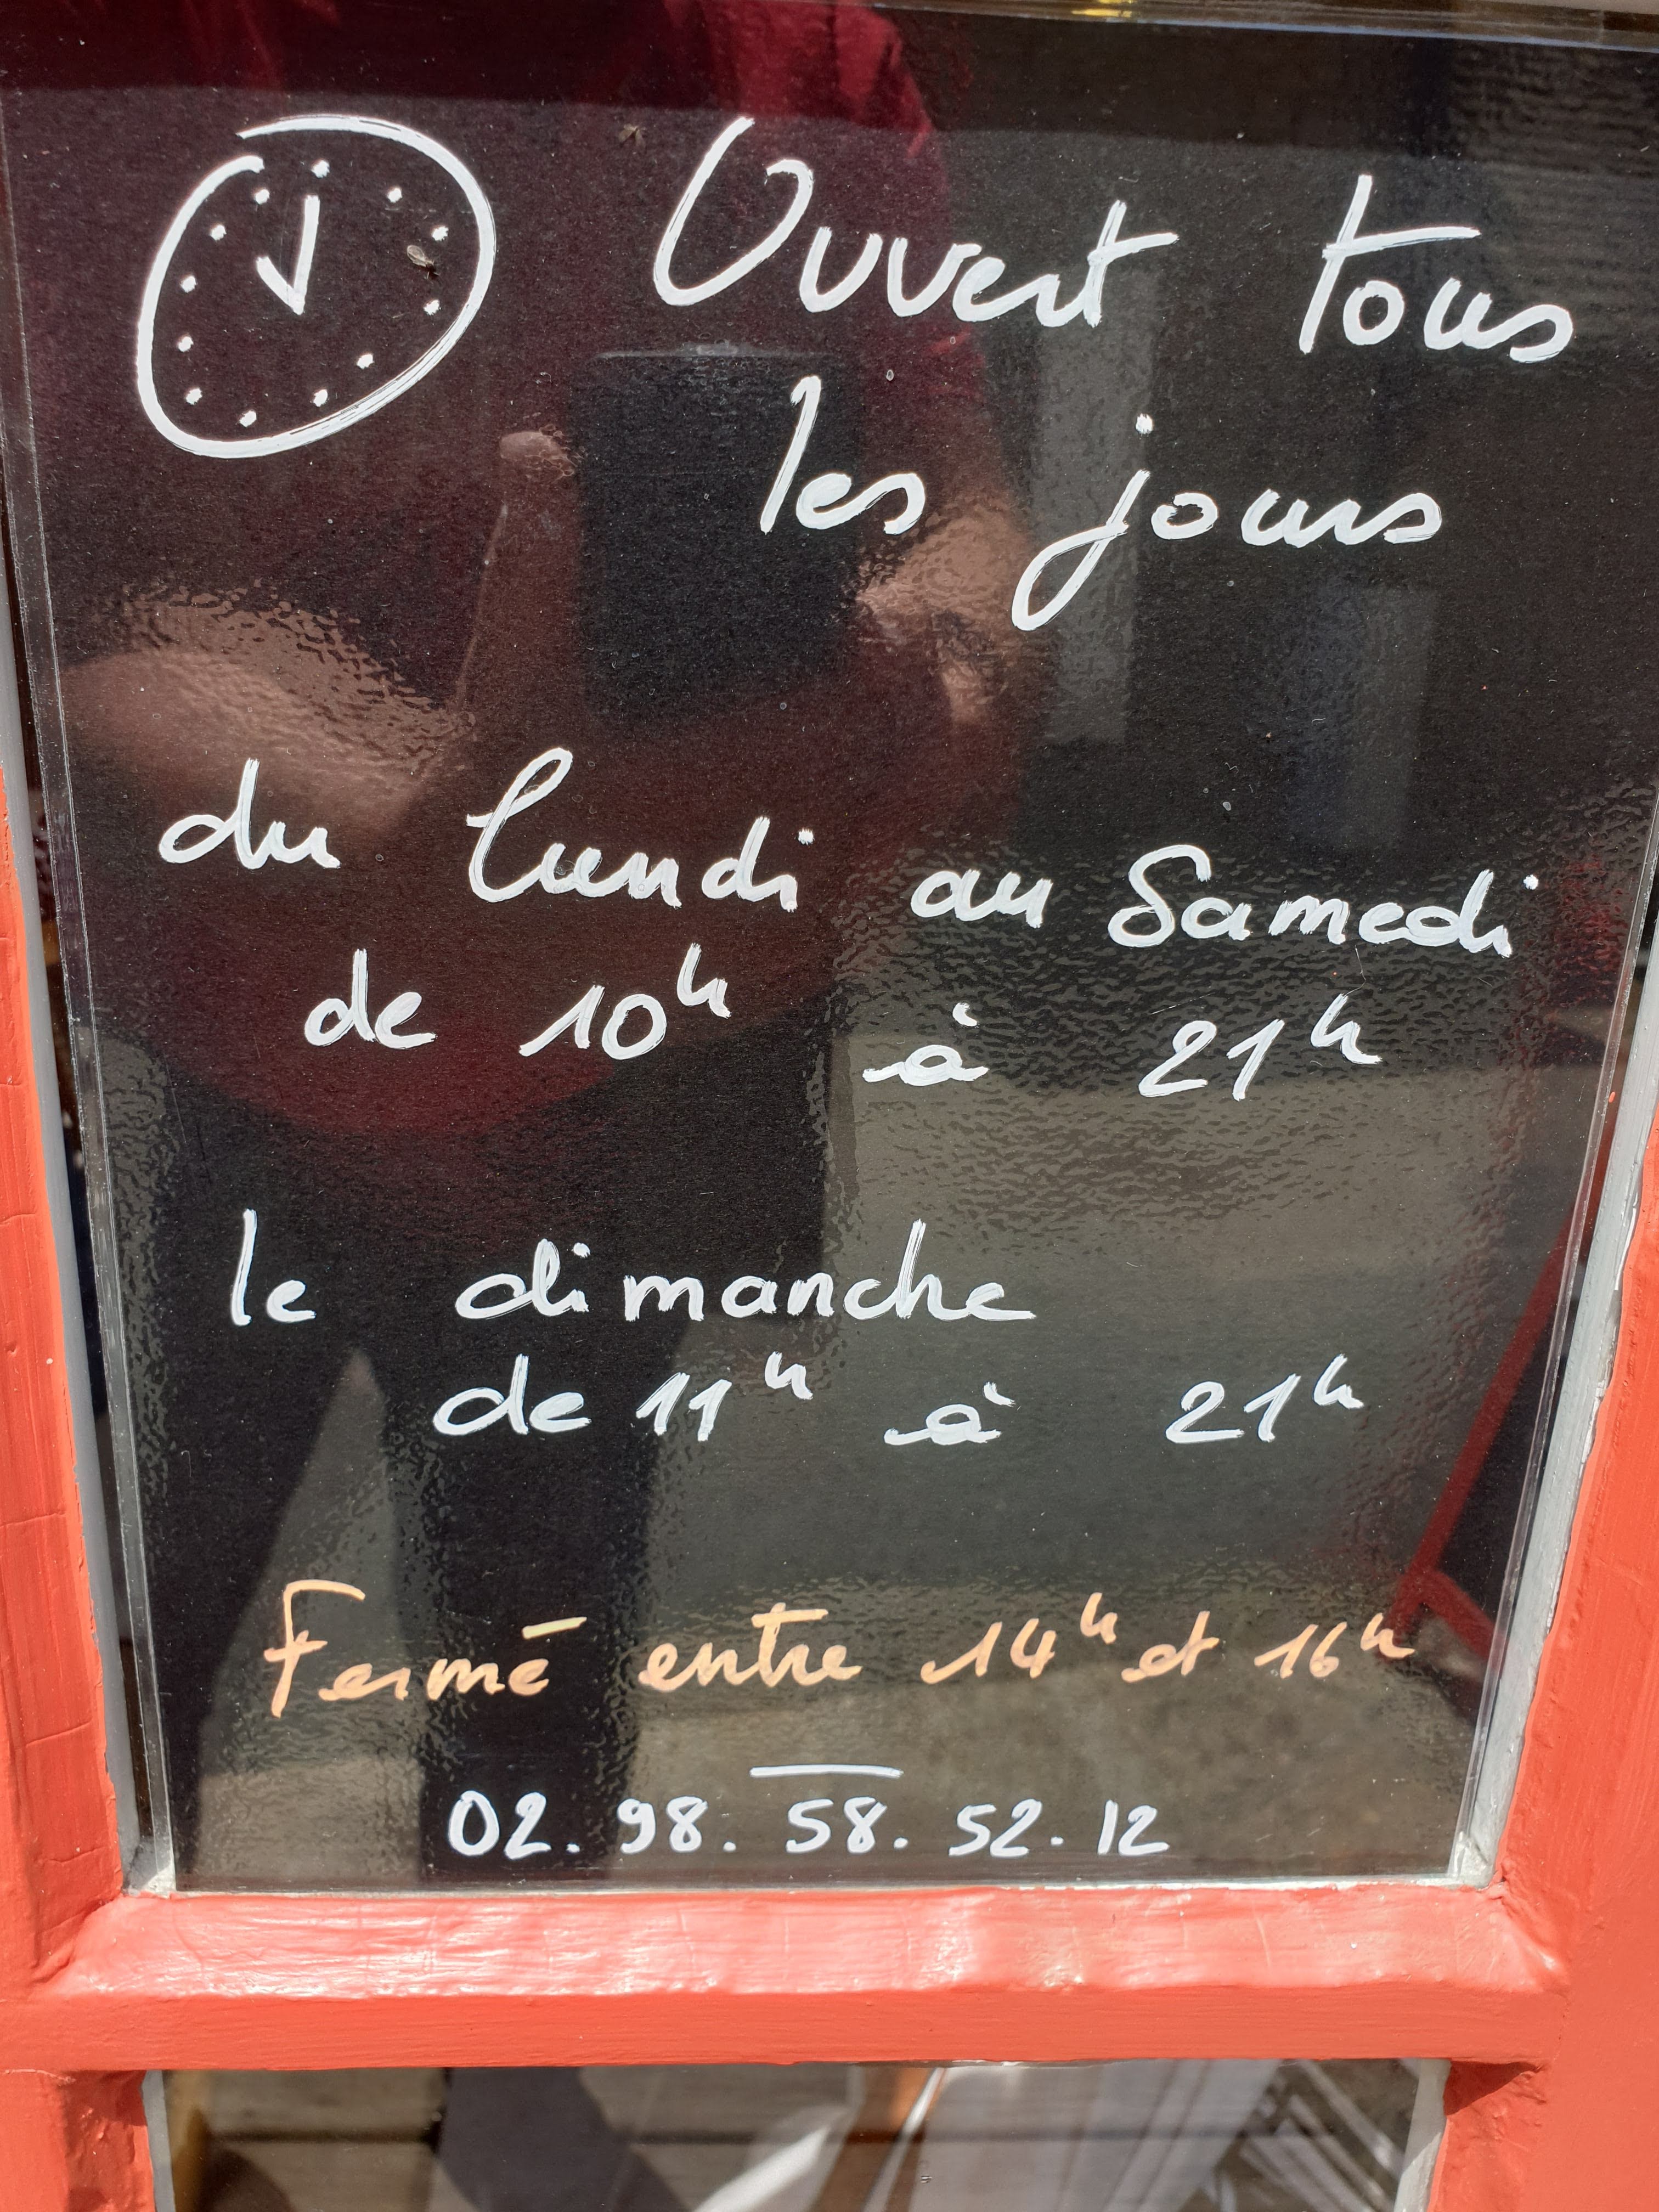 Ouvert tous
les jours
du lundi au Samedi
de 10h à 21h
le dimanche
de 11h à 21h
Fermé entre 14h et 16h
02. 98. 58. 52. 12